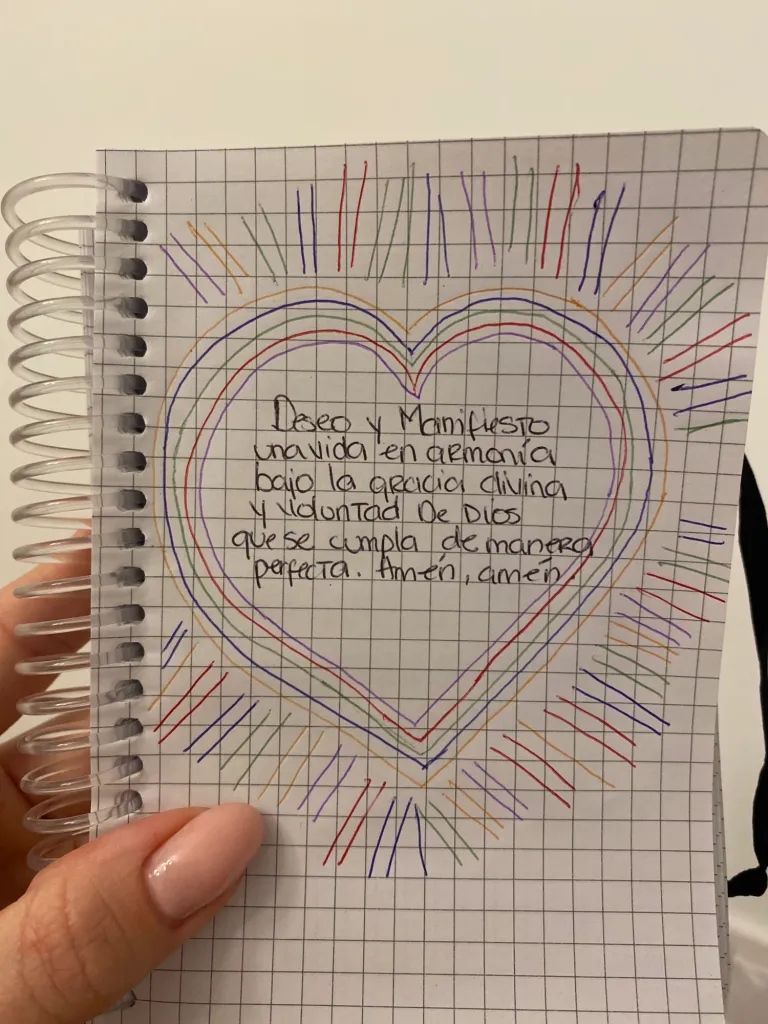 Deseo y Manifiesto
una vida en armonía
bajo la gracia divina
y voluntad De Dios
que se cumpla de manera
perfecta. Amén, amén.